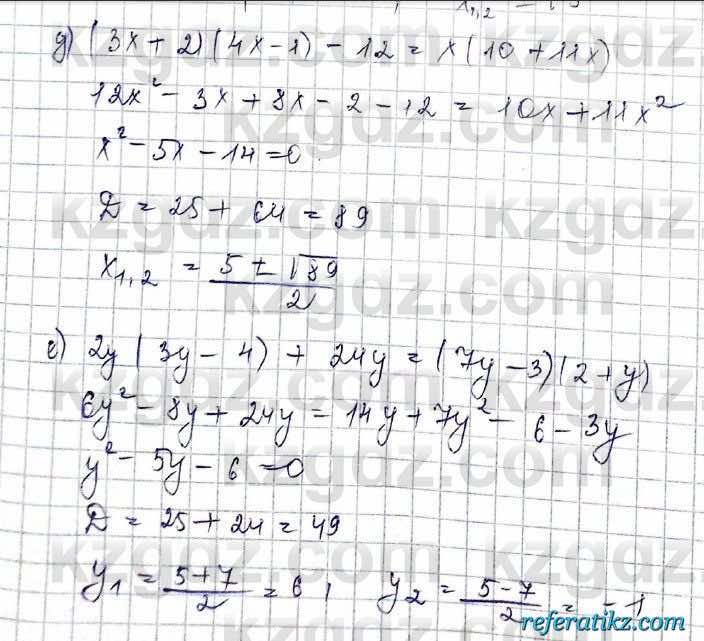 x₁,₂ =
д) (3x + 2)(4x - 1) - 12 = x(10 + 11x)
12x² - 3x + 8x - 2 - 12 = 10x + 11x²
x² - 5x - 14 = 0
D = 25 + 64 = 89
x₁,₂ = (5 ± √89)/2
е) 2y(3y - 4) + 24y = (7y - 3)(2 + y)
6y² - 8y + 24y = 14y + 7y² - 6 - 3y
y² - 5y - 6 = 0
D = 25 + 24 = 49
y₁ = (5 + 7)/2 = 6, y₂ = (5 - 7)/2 = -1
kzgdz.com
referatikz.com